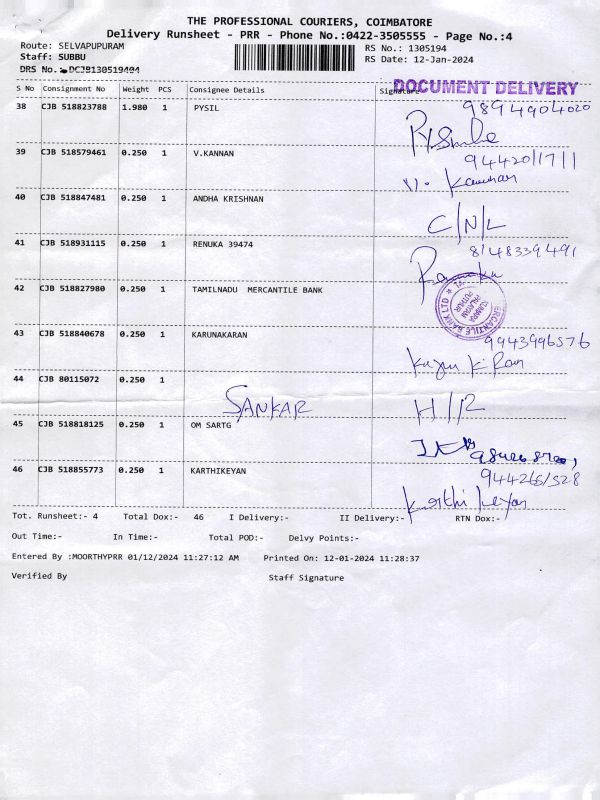 THE PROFESSIONAL COURIERS, COIMBATORE
Delivery Runsheet - PRR - Phone No.:0422-3505555 - Page No.:4
Route: SELVAPUPURAM RS No.: 1305194
Staff: SUBBU RS Date: 12-Jan-2024
DRS No.: DCJB130519404
DOCUMENT DELIVERY
S No Consignment No Weight PCS Consignee Details Signature
38 CJB 518823788 1.980 1 PYSIL 9894904020
39 CJB 518579461 0.250 1 V.KANNAN 9442011711
V. Kannan
40 CJB 518847481 0.250 1 ANDHA KRISHNAN
C/N/L
41 CJB 518931115 0.250 1 RENUKA 39474 8148339491
Renuka
42 CJB 518827980 0.250 1 TAMILNADU MERCANTILE BANK
43 CJB 518840678 0.250 1 KARUNAKARAN 9943996576
44 CJB 80115072 0.250 1
SANKAR H/R
45 CJB 518818125 0.250 1 OM SARTG
46 CJB 518855773 0.250 1 KARTHIKEYAN
Karthikeyan
Tot. Runsheet:- 4 Total Dox:- 46 I Delivery:- II Delivery:- RTN Dox:-
Out Time:- In Time:- Total POD:- Delvy Points:-
Entered By :MOORTHYPRR 01/12/2024 11:27:12 AM Printed On: 12-01-2024 11:28:37
Verified By Staff Signature